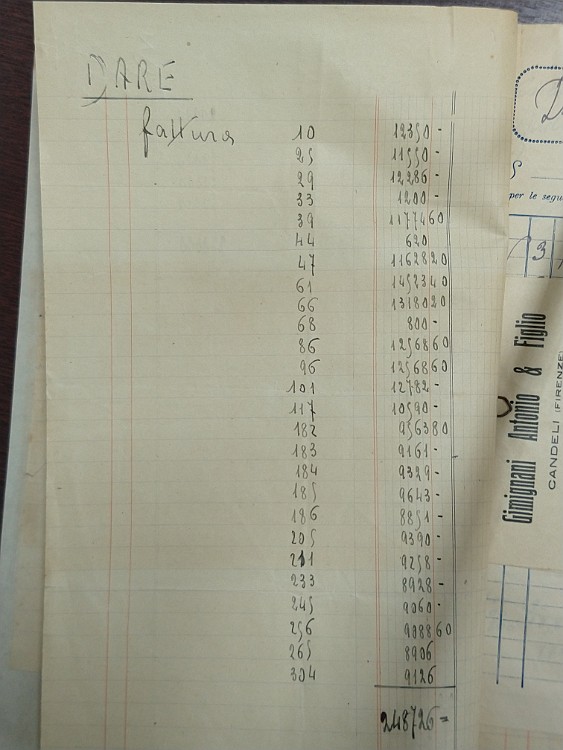 DARE
fattura 10 12350-
25 11550-
29 12286-
33 1200-
39 11774 60
44 620
47 11628 20
61 14523 40
66 13180 20
68 800-
86 12568 60
96 12568 60
101 12782-
117 10590-
182 9563 80
183 9161-
184 9329-
185 9643-
186 8851-
205 9390-
211 9258-
233 8928-
245 9060-
256 9088 60
265 8906
304 9126
248726=
per le segu
3
Gimignani Antonio & Figlio
CANDELI (FIRENZE